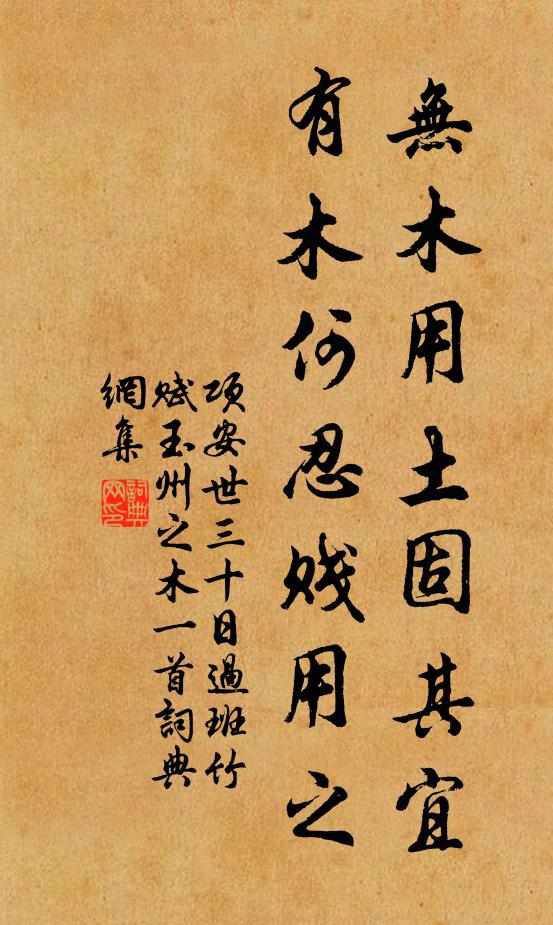 無木用土固其宜
有木何忍賤用之
項安世三十日過班竹
賦玉州之木一首詞典
網集
詞典
网印